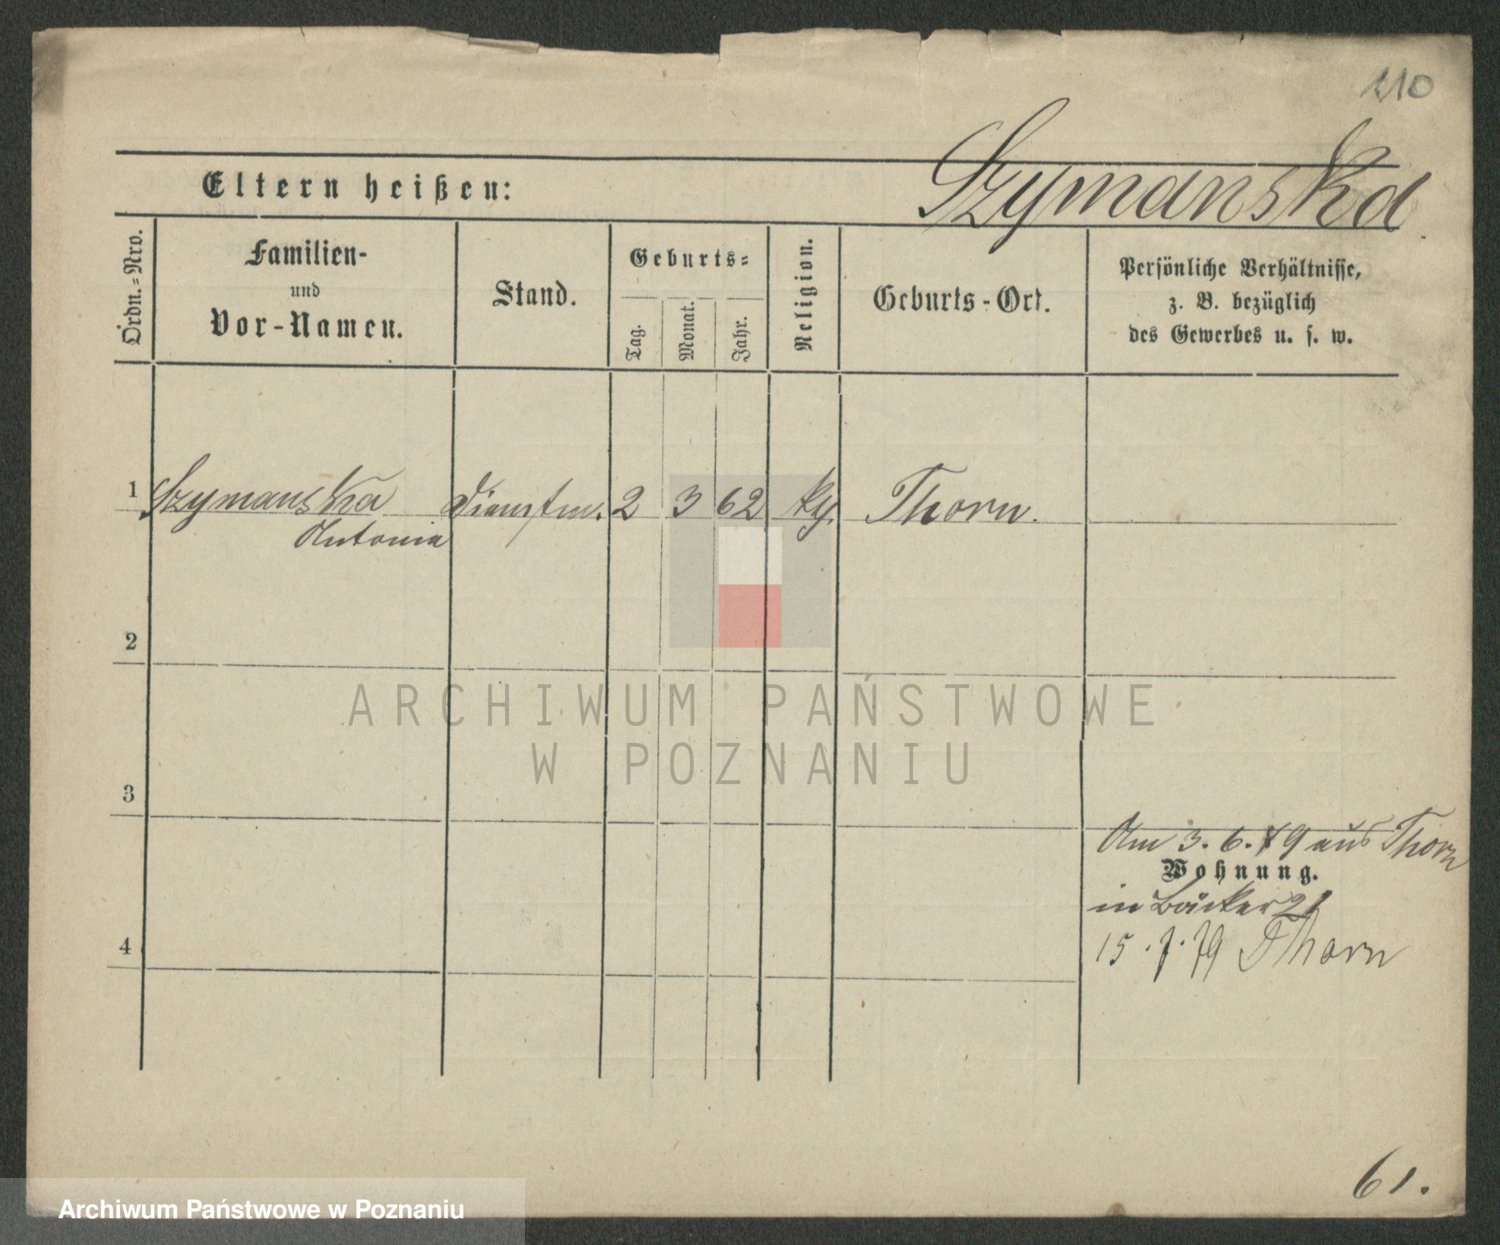 110
Szymanska
Eltern heißen:
Ordn.-Nro.
Familien-
und
Vor-Namen.
Stand.
Geburts-
Tag.
Monat.
Jahr.
Religion.
Geburts-Ort.
Persönliche Verhältnisse,
z. B. bezüglich
des Gewerbes u. s. w.
1 Szymanska Dienstm. 2 3 62 Thorn.
Antonia
2
ARCHIWUM PAŃSTWOWE
W POZNANIU
3
Am 3. 6. 79 aus Thorn
Wohnung.
in Bäcker 21
4
15. 7. 79 Thorn
61.
Archiwum Państwowe w Poznaniu